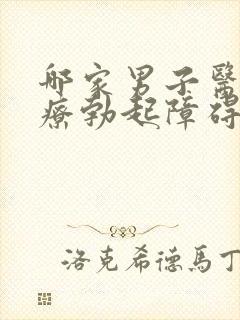 邮家男子醫
療勃起障碍
洛克希德馬丁